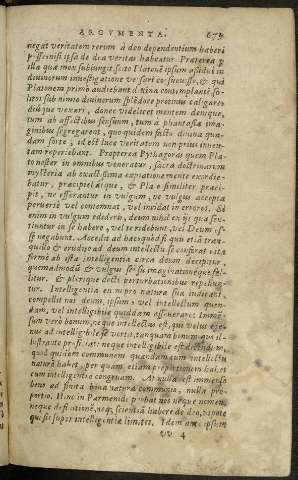 ARGVMENTA. 679
negat veritatem rerum à deo dependentium haberi
posse nisi ipsa de dea veritas habeatur. Praeterea
illa quae mox subiungit, scito Platonem ipsum assidue in
divinorum investigatione versari
Platonem primo audiebant divina contemplatè so-
litos sub nimio divinorum splēdore protinus caligare,
diúque vexari, donec videlicet mentem denique,
tum ab affectibus sensuum, tum à phantasiæ ima-
ginibus segregarent, quo quidem facto divina qua-
dam sorte, id est luce veritatem non prius inven-
tam reperiebant. Propterea Pythagoras quem Pla-
to noster in omnibus veneratur, sacra doctrinarum
mysteria ab exactissima expiatione mente exordie-
batur, præcipiebatque, & Plato similiter præci-
pit, ne efferantur in vulgum, ne vulgus accepta
perverse vel contemnat, vel invadat in errores. Si
enim in vulgum ederis, deum nihil ex iis quæ sen-
tiuntur in se habere, vel te ridebunt, vel Deum es-
se negabunt. Accedit ad hæc quòd si quis etiā tran-
quillo & erudito ad deum intellectu se conferat cita
formā ab ista intelligentia circa deum decipitur,
quemadmodū & vulgus sensus imaginatione fal-
litur. & plerique docti perturbationibus repellun-
tur. Intelligentia enim pro natura sua indicare
compellit nos deum, ipsum, vel intellectum quen-
dam, vel intelligibile quiddam esse
sum verò bonum, neque intellectus est, qui velut ege-
nus ad intelligibile se vertit, tanquam bonum quo il-
lustrante proficiat: neque intelligibile est dicendum,
quod quidem communem quandam cum intellectu
naturā habet, per quam etiam proportionem habet
cum intelligentia congruam. At nulla est immenso
bono ad finita bona natura communis, nulla pro-
portio. Hinc in Parmenide probat nos neque nomen
neque definitionē, neque scientiā habere de deo, utpote
qui sit super intelligentiæ limites. Idem ante ipsum
vv 4